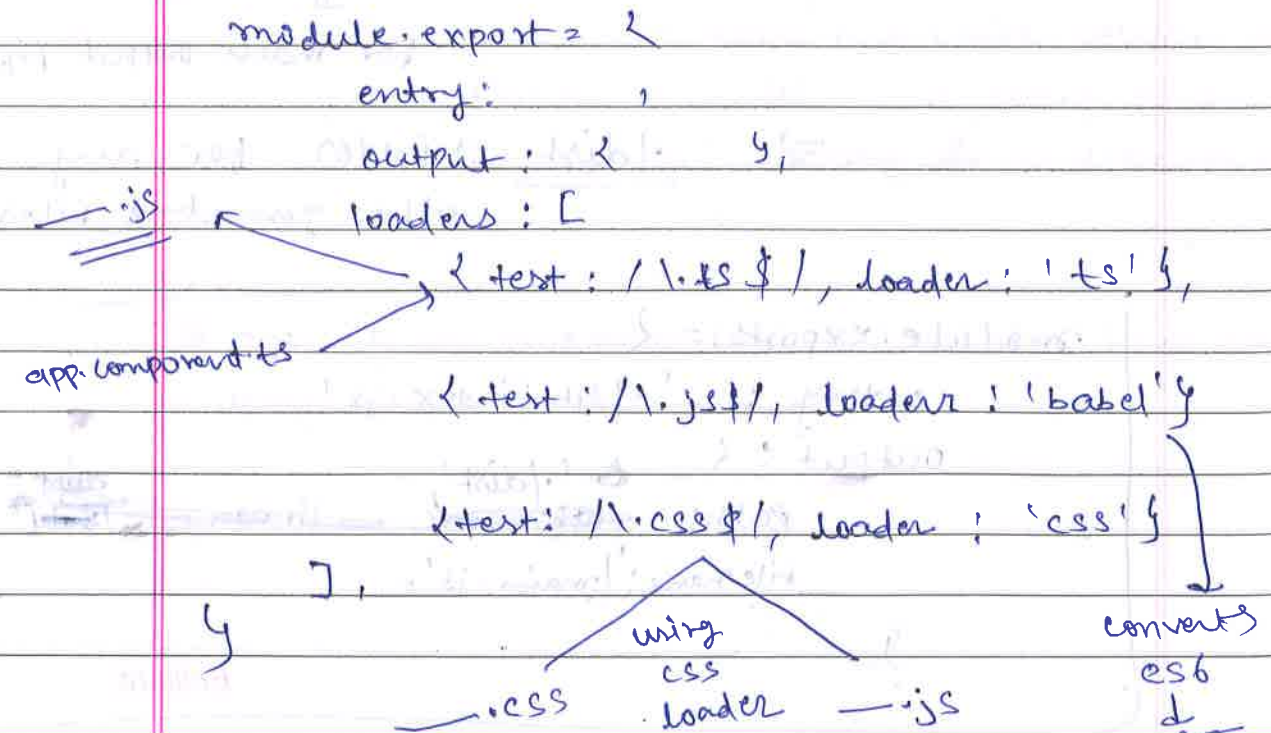 module.export = {
entry: ,
output : { },
.js
loaders : [
{ test : /\.ts $/, loader : 'ts' },
app.component.ts
{ test : /\.js$/, loader : 'babel' }
{ test : /\.css $/, loader : 'css' }
],
}
using
css
loader
.css
.js
converts
es6